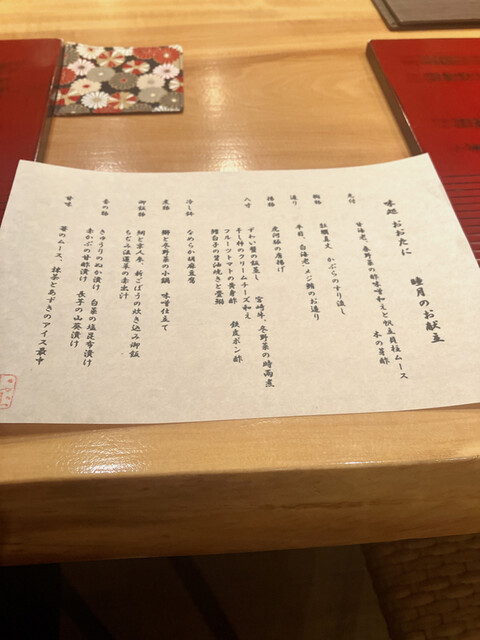 味処 おおたに　睦月のお献立
先付　甘海老、春野菜の酢味噌和えと帆立貝柱ムース
木の芽酢
かぶらのすり流し
椀物　牡蠣真丈
造り　平目、白海老、メジ鮪のお造り
揚物　虎河豚の唐揚げ
八寸　ずわい蟹の飯蒸し　宮崎牛、冬野菜の時雨煮
干し柿のクリームチーズ和え　鉄皮ポン酢
フルーツトマトの黄身酢
鱈白子の醤油焼きと畳鰯
冷し鉢　なめらか胡麻豆腐
煮物　鰤と冬野菜の小鍋　味噌仕立て
御飯物　鯛と京人参、新ごぼうの炊き込み御飯
ちぢみ法蓮草の赤出汁
香の物　きゅうりのぬか漬け　白菜の塩昆布漬け
赤かぶの甘酢漬け　長芋の山葵漬け
甘味　苺のムース、抹茶とあずきのアイス最中